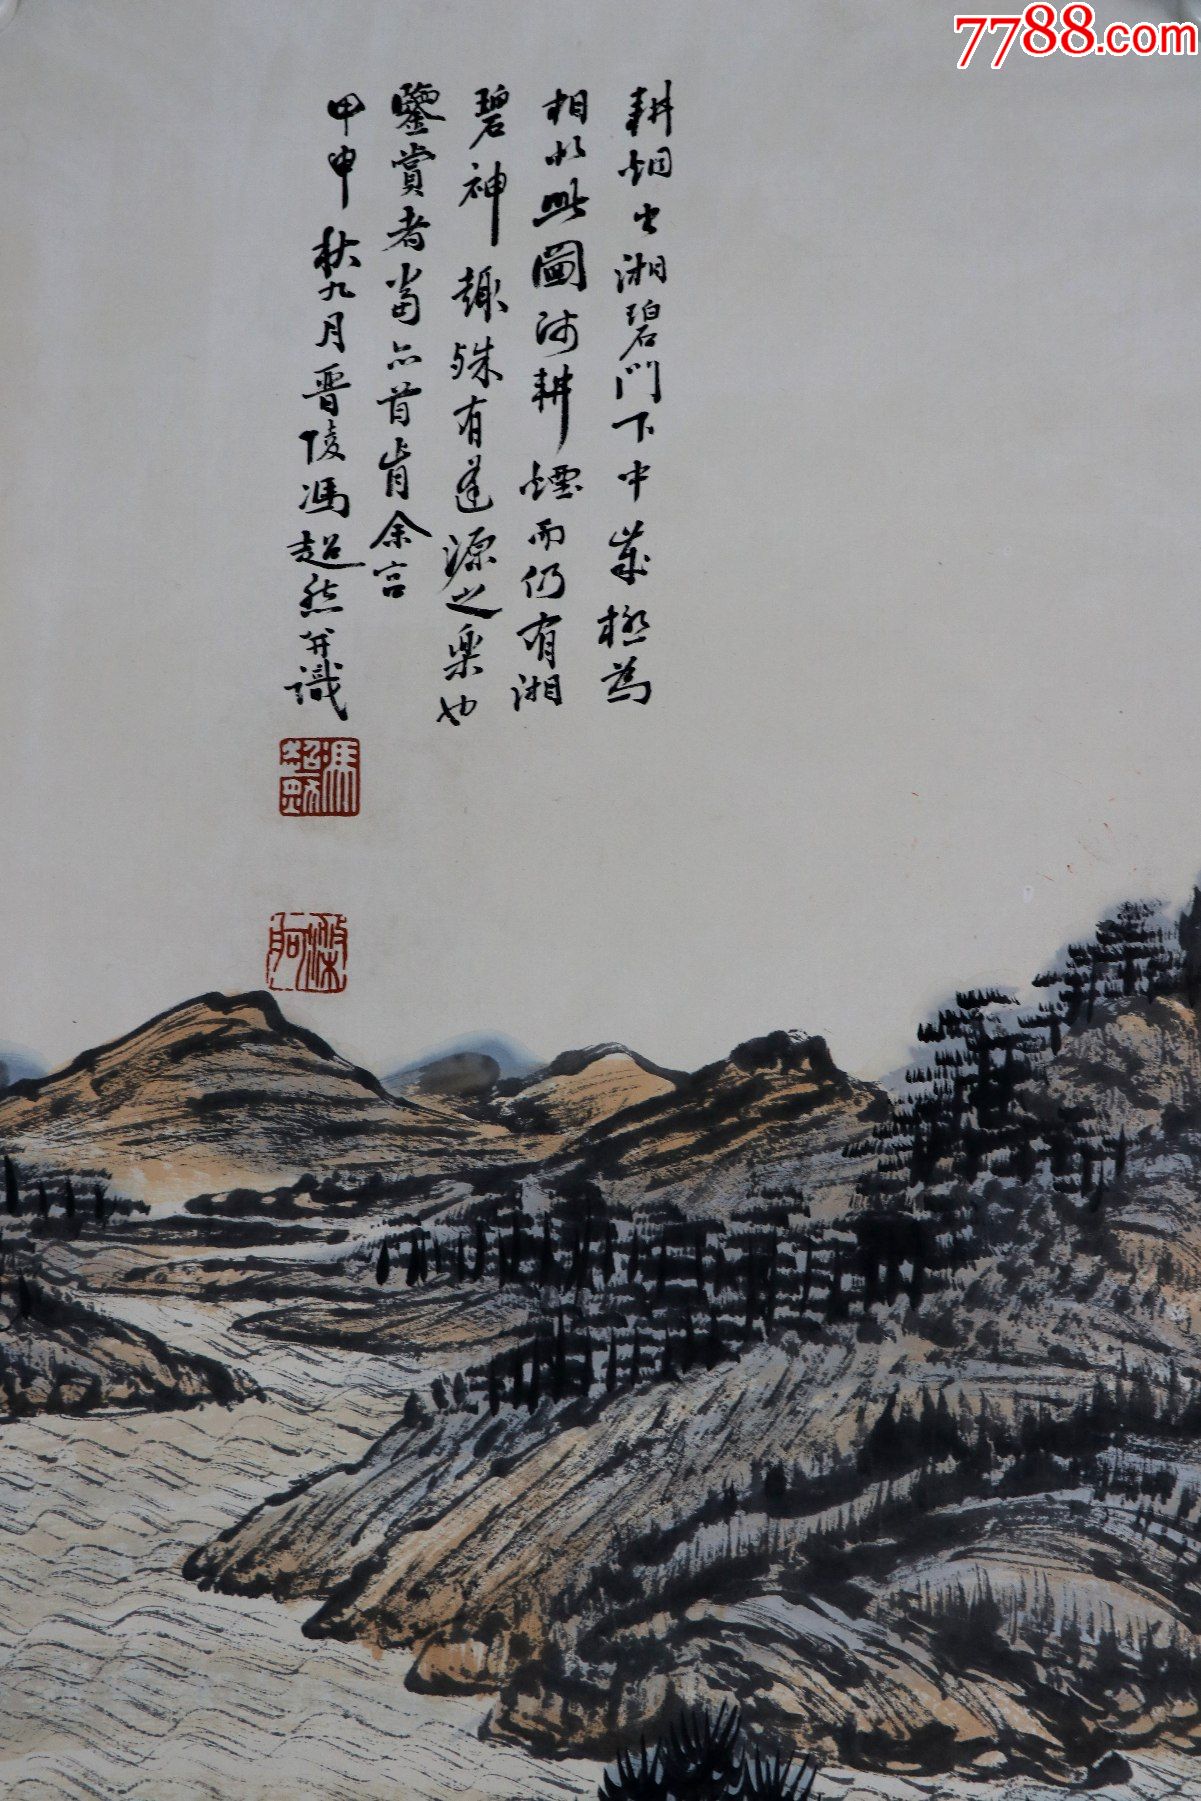 7788.com
耕烟出湘碧門下中歲極爲
相似此圖師耕煙而仍有湘
碧神趣殊有逢源之樂也
鑒賞者當亦首肯余言
甲申秋九月晋陵馮超然并識
馮超然